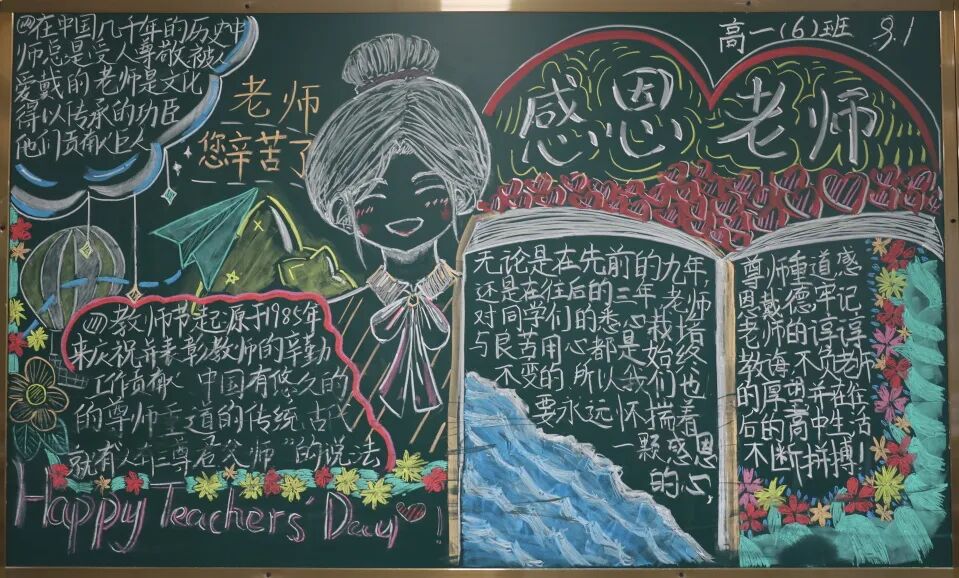 高一(6)班 9.1
在中国几千年的历史中
师总是受人尊敬被人
爱戴的老师是文化
得以传承的功臣
他们贡献巨
老师
您辛苦了
感恩老师
教师节起源于1985年
来庆祝并表彰教师的辛勤
工作贡献 中国有悠久的
的尊师重道的传统 古代
就有 尊君 师”的说法
Happy Teachers' Day !
无论是在先前的九年,
还是在往后的三年,老师
对同学们的悉心栽培
与艰苦用心都是始终
不变的 所以我们也
要永远怀揣着
一颗感恩
的心,
尊师重道感
恩戴德牢记
老师的谆谆
教诲不负老师
的厚望并在往
后的高中生活
不断拼搏!